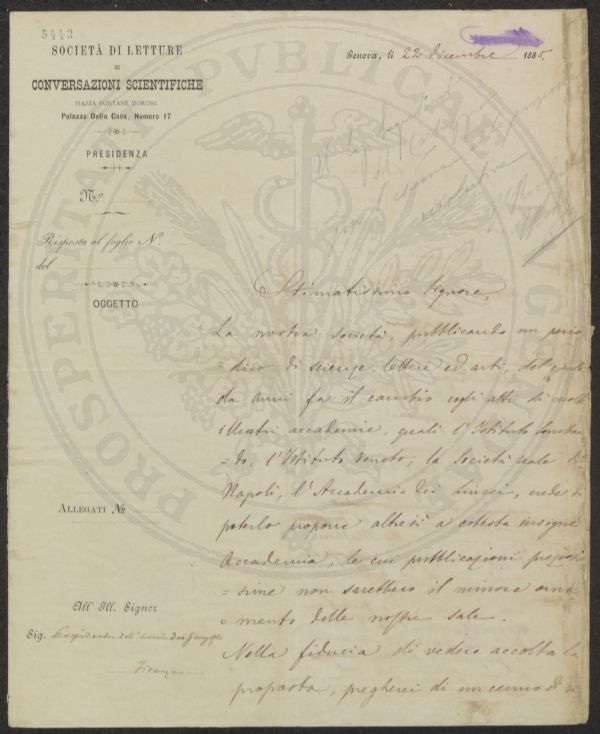 5443
SOCIETÀ DI LETTURE
E
CONVERSAZIONI SCIENTIFICHE
PIAZZA FONTANE MOROSE
Palazzo Della Casa, Numero 17
PRESIDENZA
N.o
Risposta al foglio N.o
del
OGGETTO
ALLEGATI No
All' Ill. Signor
Sig. Presidente dell'Accad. dei Georgofili
Firenze
Genova, li 22 dicembre 1885.
Stimatissimo Signore,
La nostra società, pubblicando un perio
=dico di scienze, lettere ed arti, del quale
da anni fa il cambio cogli atti di molte
illustri accademie, quali l'Istituto Lombar
=do, l'Istituto Veneto, la Società reale di
Napoli, l'Accademia dei Lincei, crede di
poterlo proporre altresì a cotesta insigne
Accademia, le cui pubblicazioni prezio
=sime non sarebbero il minore orna
=mento delle nostre sale.
Nella fiducia di vedere accolta la
proposta, pregherei di un cenno di
PROSPERITATI PVBLICAE AVG